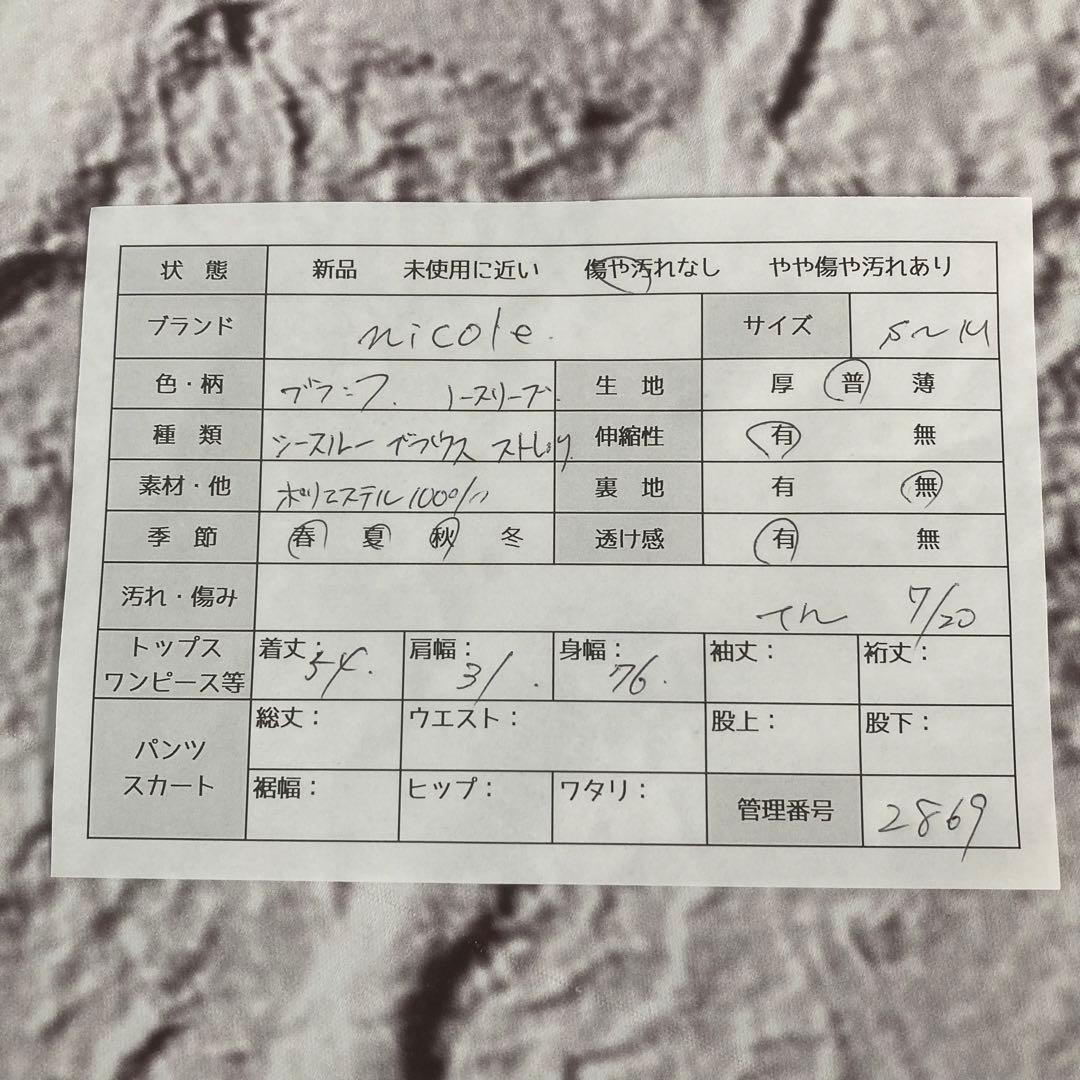 状態 新品 未使用に近い 傷や汚れなし やや傷や汚れあり
ブランド nicole. サイズ S〜M
色・柄 ノースリーブ 生地 厚 普 薄
種類 シースルー ブラウス ストレッチ 伸縮性 有 無
素材・他 ポリエステル100% 裏地 有 無
季節 春 夏 秋 冬 透け感 有 無
汚れ・傷み 7/20
トップス ワンピース等 着丈: 54. 肩幅: 31. 身幅: 76. 袖丈: 裄丈:
パンツ スカート 総丈: ウエスト: 股上: 股下:
裾幅: ヒップ: ワタリ: 管理番号 2869